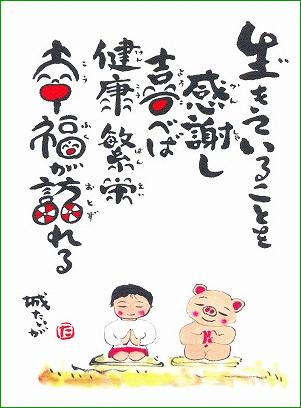 生きていることを
かんしゃ
感謝し
よろこ
喜べば
けんこう はんえい
健康繁栄
こうふく おとず
幸福が訪れる
城たいが